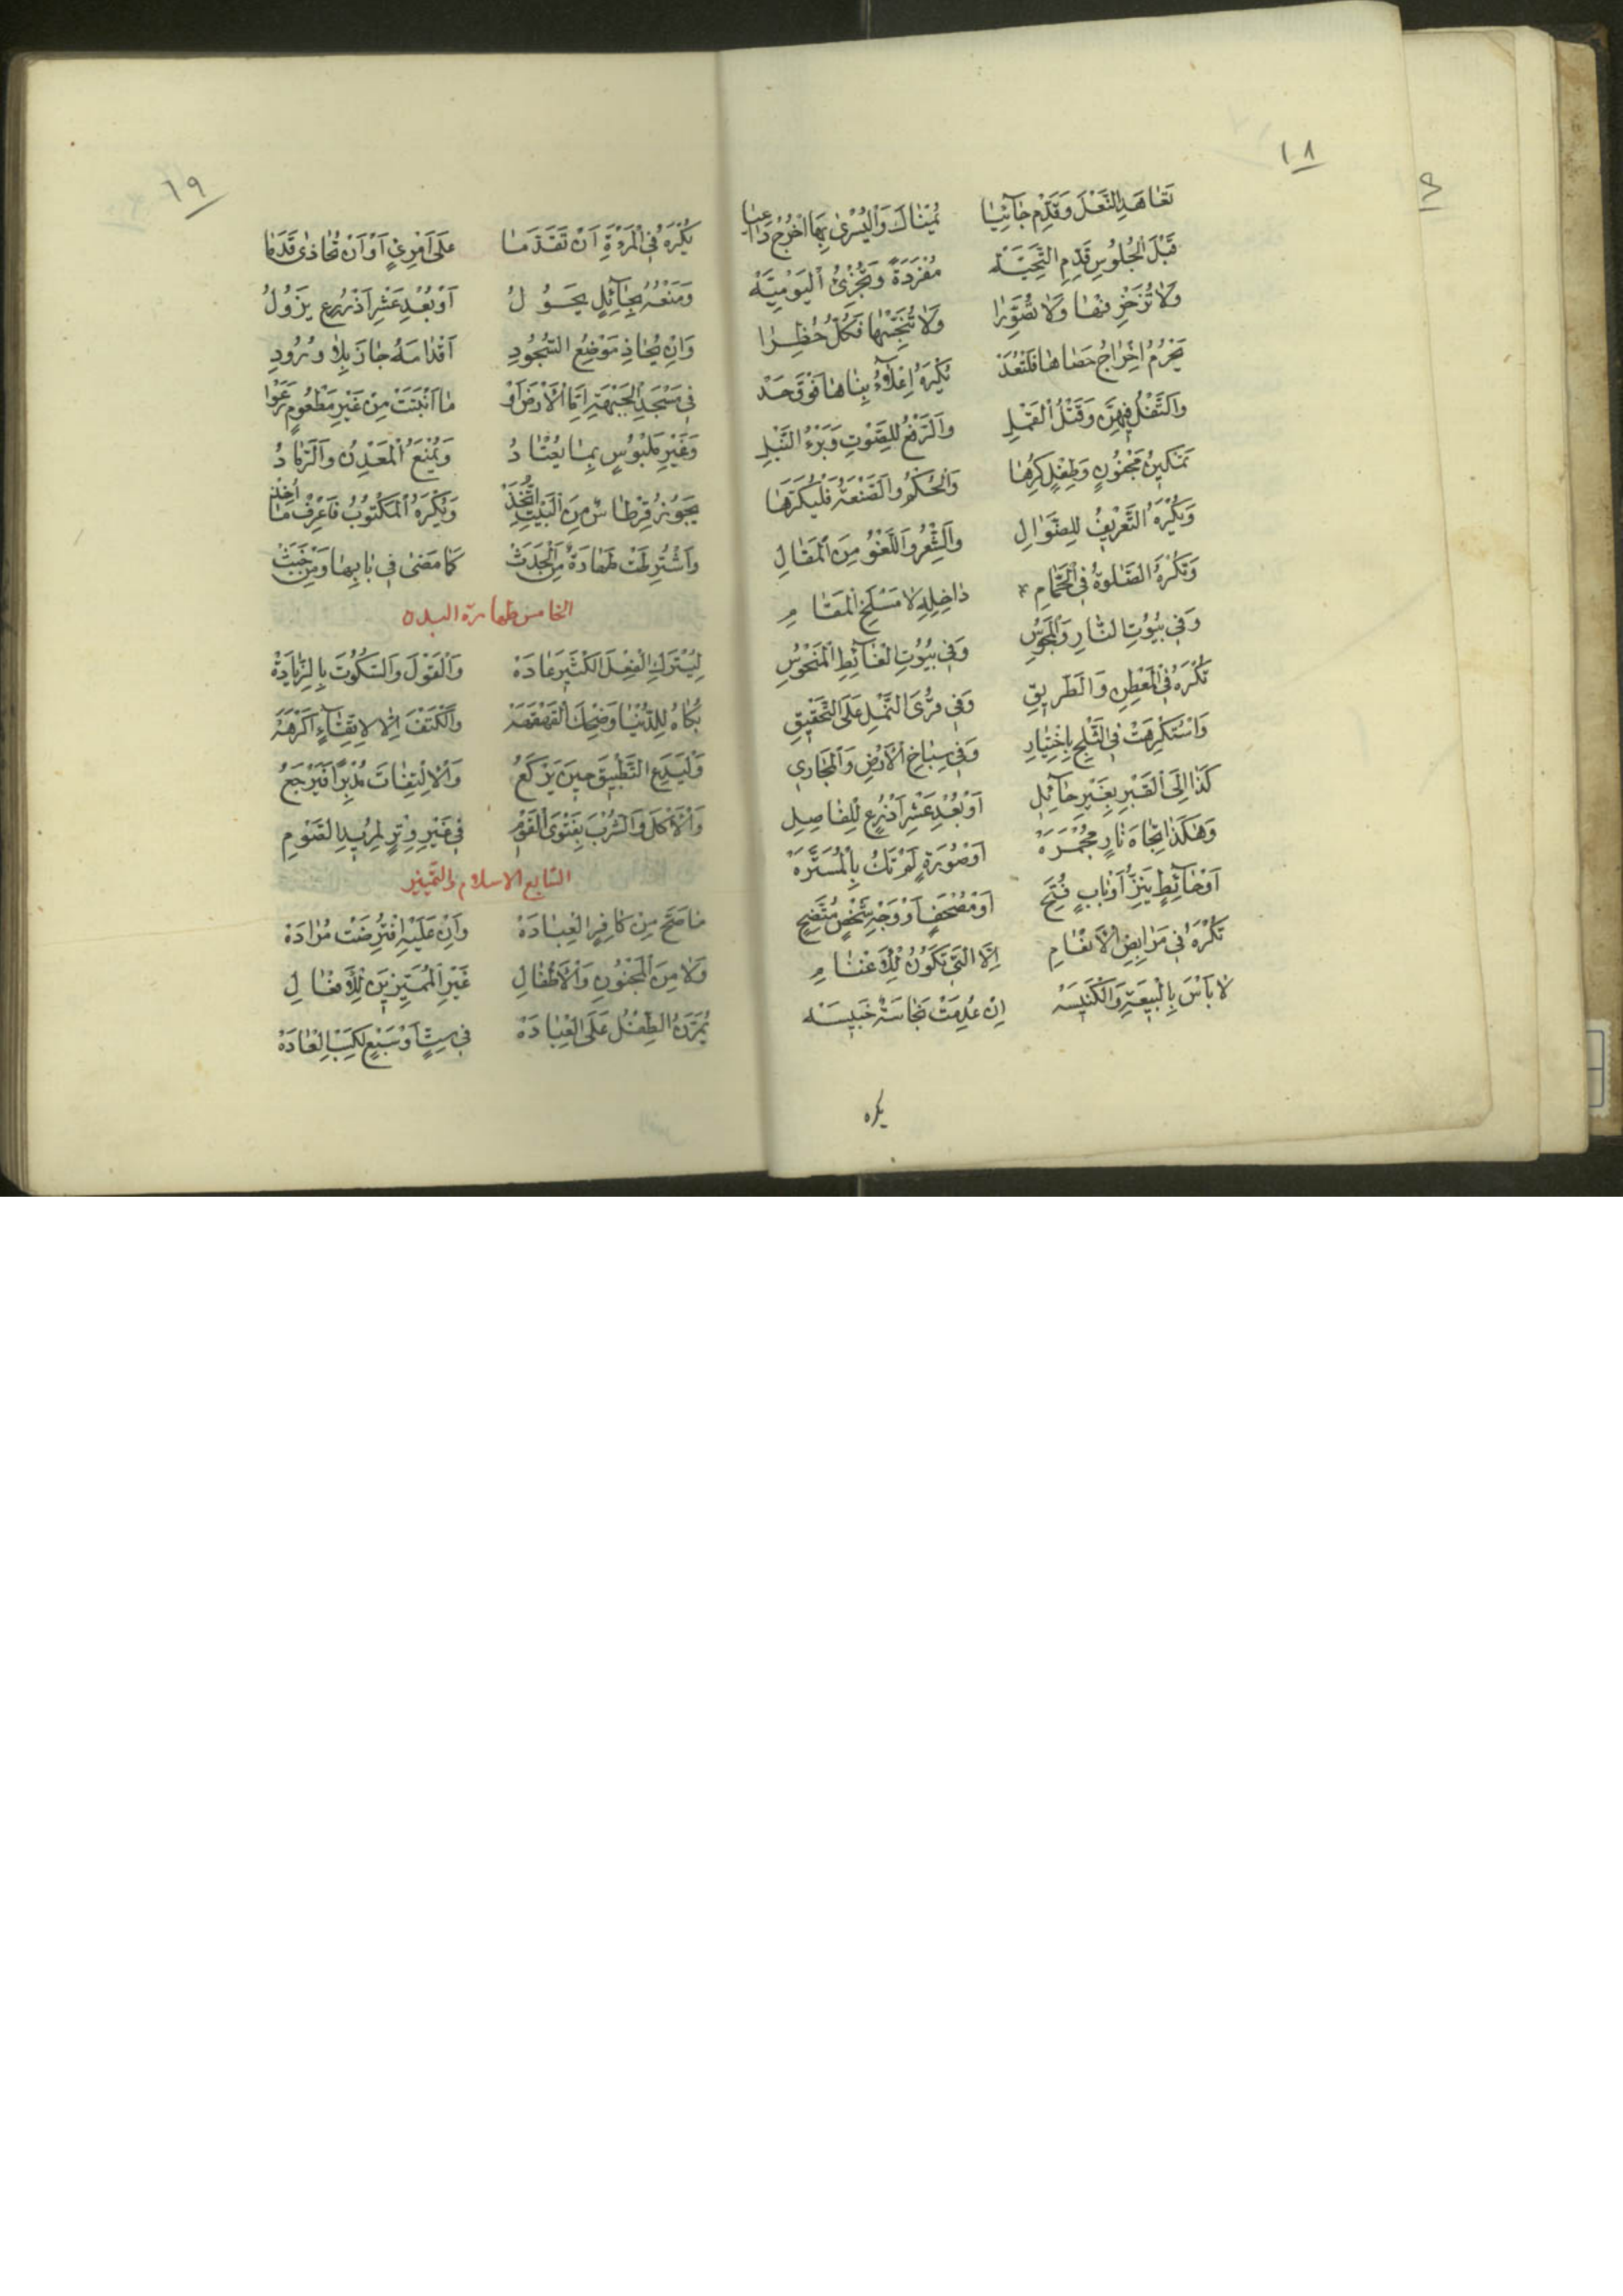 ١٨
تَعَاهَدِ النَّعْلَ وَقَدِّمْ جَآئِيًا يُمْنَاكَ وَالْيُسْرَى بِهَا اخْرُجْ دَاعِيًا
قَبْلَ الْجُلُوسِ قَدِّمِ التَّحِيَّه مُفْرَدَةً وَتُجْزِئُ الْيَوْمِيَّه
وَلَا تُزَخْرِفْهَا وَلَا تُصَوِّرَا وَلَا تُنَجِّسْهَا فَكُلٌّ حُظِرَا
يَحْرُمُ اِخْرَاجُ حَصَاهَا فَلْتُعَدْ يُكْرَهُ اِعْلَآءُ بِنَاهَا فَوْقَ حَدْ
وَالتَّفْلُ فِيهِنَّ وَقَتْلُ الْقَمْلِ وَالرَّفْعُ لِلصَّوْتِ وَبَرْءُ النَّبْلِ
تَمْكِينُ مَجْنُونٍ وَطِفْلٍ كَرِهَا وَالْحُكْمُ وَالصَّنْعَةُ فَلْيُكَرَّهَا
وَيُكْرَهُ التَّعْرِيفُ لِلضَّوَالِ وَالشِّعْرُ وَاللَّغْوُ مِنَ الْمَقَالِ
وَتُكْرَهُ الصَّلٰوةُ فِي الْحَمَّامِ دَاخِلِهِ لَا مَسْلَخِ الْمَقَامِ
وَفِي بُيُوتِ النَّارِ وَالْمَجُوسِ وَفِي بُيُوتِ الْغَآئِطِ الْمَنْحُوسِ
تُكْرَهُ فِي الْمَعْطِنِ وَالطَّرِيقِ وَفِي قُرَى النَّمْلِ عَلَى التَّحْقِيقِ
وَاسْتُكْرِهَتْ فِي الثَّلْجِ بِاخْتِيَارِ وَفِي سِبَاخِ الْاَرْضِ وَالْمَجَارِي
كَذَا اِلَى الْقَبْرِ بِغَيْرِ حَآئِلِ اَوْ بُعْدِ عَشْرِ اَذْرُعٍ لِلْفَاصِلِ
وَهٰكَذَا تِجَاهَ نَارٍ مُجْمَرَهْ اَوْ صُورَةٍ لَمْ تَكُ بِالْمُسَتَّرَهْ
اَوْ حَآئِطٍ يَنِزُّ اَوْ بَابٍ فُتِحْ اَوْ مُصْحَفٍ اَوْ وَجْهِ شَخْصٍ مُتَّضِحْ
تُكْرَهُ فِي مَرَابِضِ الْاَنْعَامِ اِلَّا الَّتِي تَكُونُ لِلْاَغْنَامِ
لَا بَاْسَ بِالْبِيعَةِ وَالْكَنِيسَه اِنْ عُدِمَتْ نَجَاسَةٌ خَبِيسَه
يكره
١٩
يُكْرَهُ فِي الْمَرْءَةِ اَنْ تَقَدَّمَا عَلَى امْرِئٍ اَوْ اَنْ تُحَاذِى قَدَمَا
وَمَنْعُهُ بِحَآئِلٍ يَحُولُ اَوْ بُعْدِ عَشْرِ اَذْرُعٍ يَزُولُ
وَاِنْ يُحَاذِ مَوْضِعُ السُّجُودِ اَقْدَامَهُ جَازَ بِلَا وُرُودِ
فِي مَسْجَدِ الْجَبْهَةِ اِمَّا الْاَرْضَ اَوْ مَا اَنْبَتَتْ مِنْ غَيْرِ مَطْعُومٍ رَعَوْا
وَغَيْرِ مَلْبُوسٍ بِمَا يُعْتَادُ وَيُمْنَعُ الْمَعْدِنُ وَالرَّمَادُ
يَجُوزُ قِرْطَاسٌ مِنَ النَّبْتِ اتُّخِذْ وَيُكْرَهُ الْمَكْتُوبُ فَاعْرِفْ مَا اُخِذْ
وَاشْتُرِطَتْ طَهَارَةٌ مِنَ الْحَدَثْ كَمَا مَضٰى فِي بَابِهَا وَمِنْ خَبَثْ
الخامس طهارة البدن
لِيُتْرَكِ الْفِعْلَ الْكَثِيرَ عَادَهْ وَالْقَوْلَ وَالسُّكُوتَ بِالزِّيَادَهْ
بُكَاهُ لِلدُّنْيَا وَضِحْكَ الْقَهْقَهَهْ وَالْكَتْفَ اِلَّا لِاتِّقَآءٍ اَكْرَهَهْ
وَلْيَدَعِ التَّطْبِيقَ حِينَ يَرْكَعُ وَالْاِلْتِفَاتَ مُدْبِرًا فَيَرْجَعُ
وَالْاَكْلَ وَالشُّرْبَ بِفَتْوَى الْقَوْمِ فِي غَيْرِ وِتْرٍ لِمُرِيدِ الصَّوْمِ
السابع الاسلام والتمييز
مَا صَحَّ مِنْ كَافِرٍ الْعِبَادَهْ وَاِنْ عَلَيْهِ افْتُرِضَتْ مُرَادَهْ
وَلَا مِنَ الْمَجْنُونِ وَالْاَطْفَالِ غَيْرِ الْمُمَيِّزِينَ لِلْاَفْعَالِ
يُمَرَّنُ الطِّفْلُ عَلَى الْعِبَادَهْ فِي سِتٍّ اَوْ سَبْعٍ لِكَسْبِ الْعَادَهْ